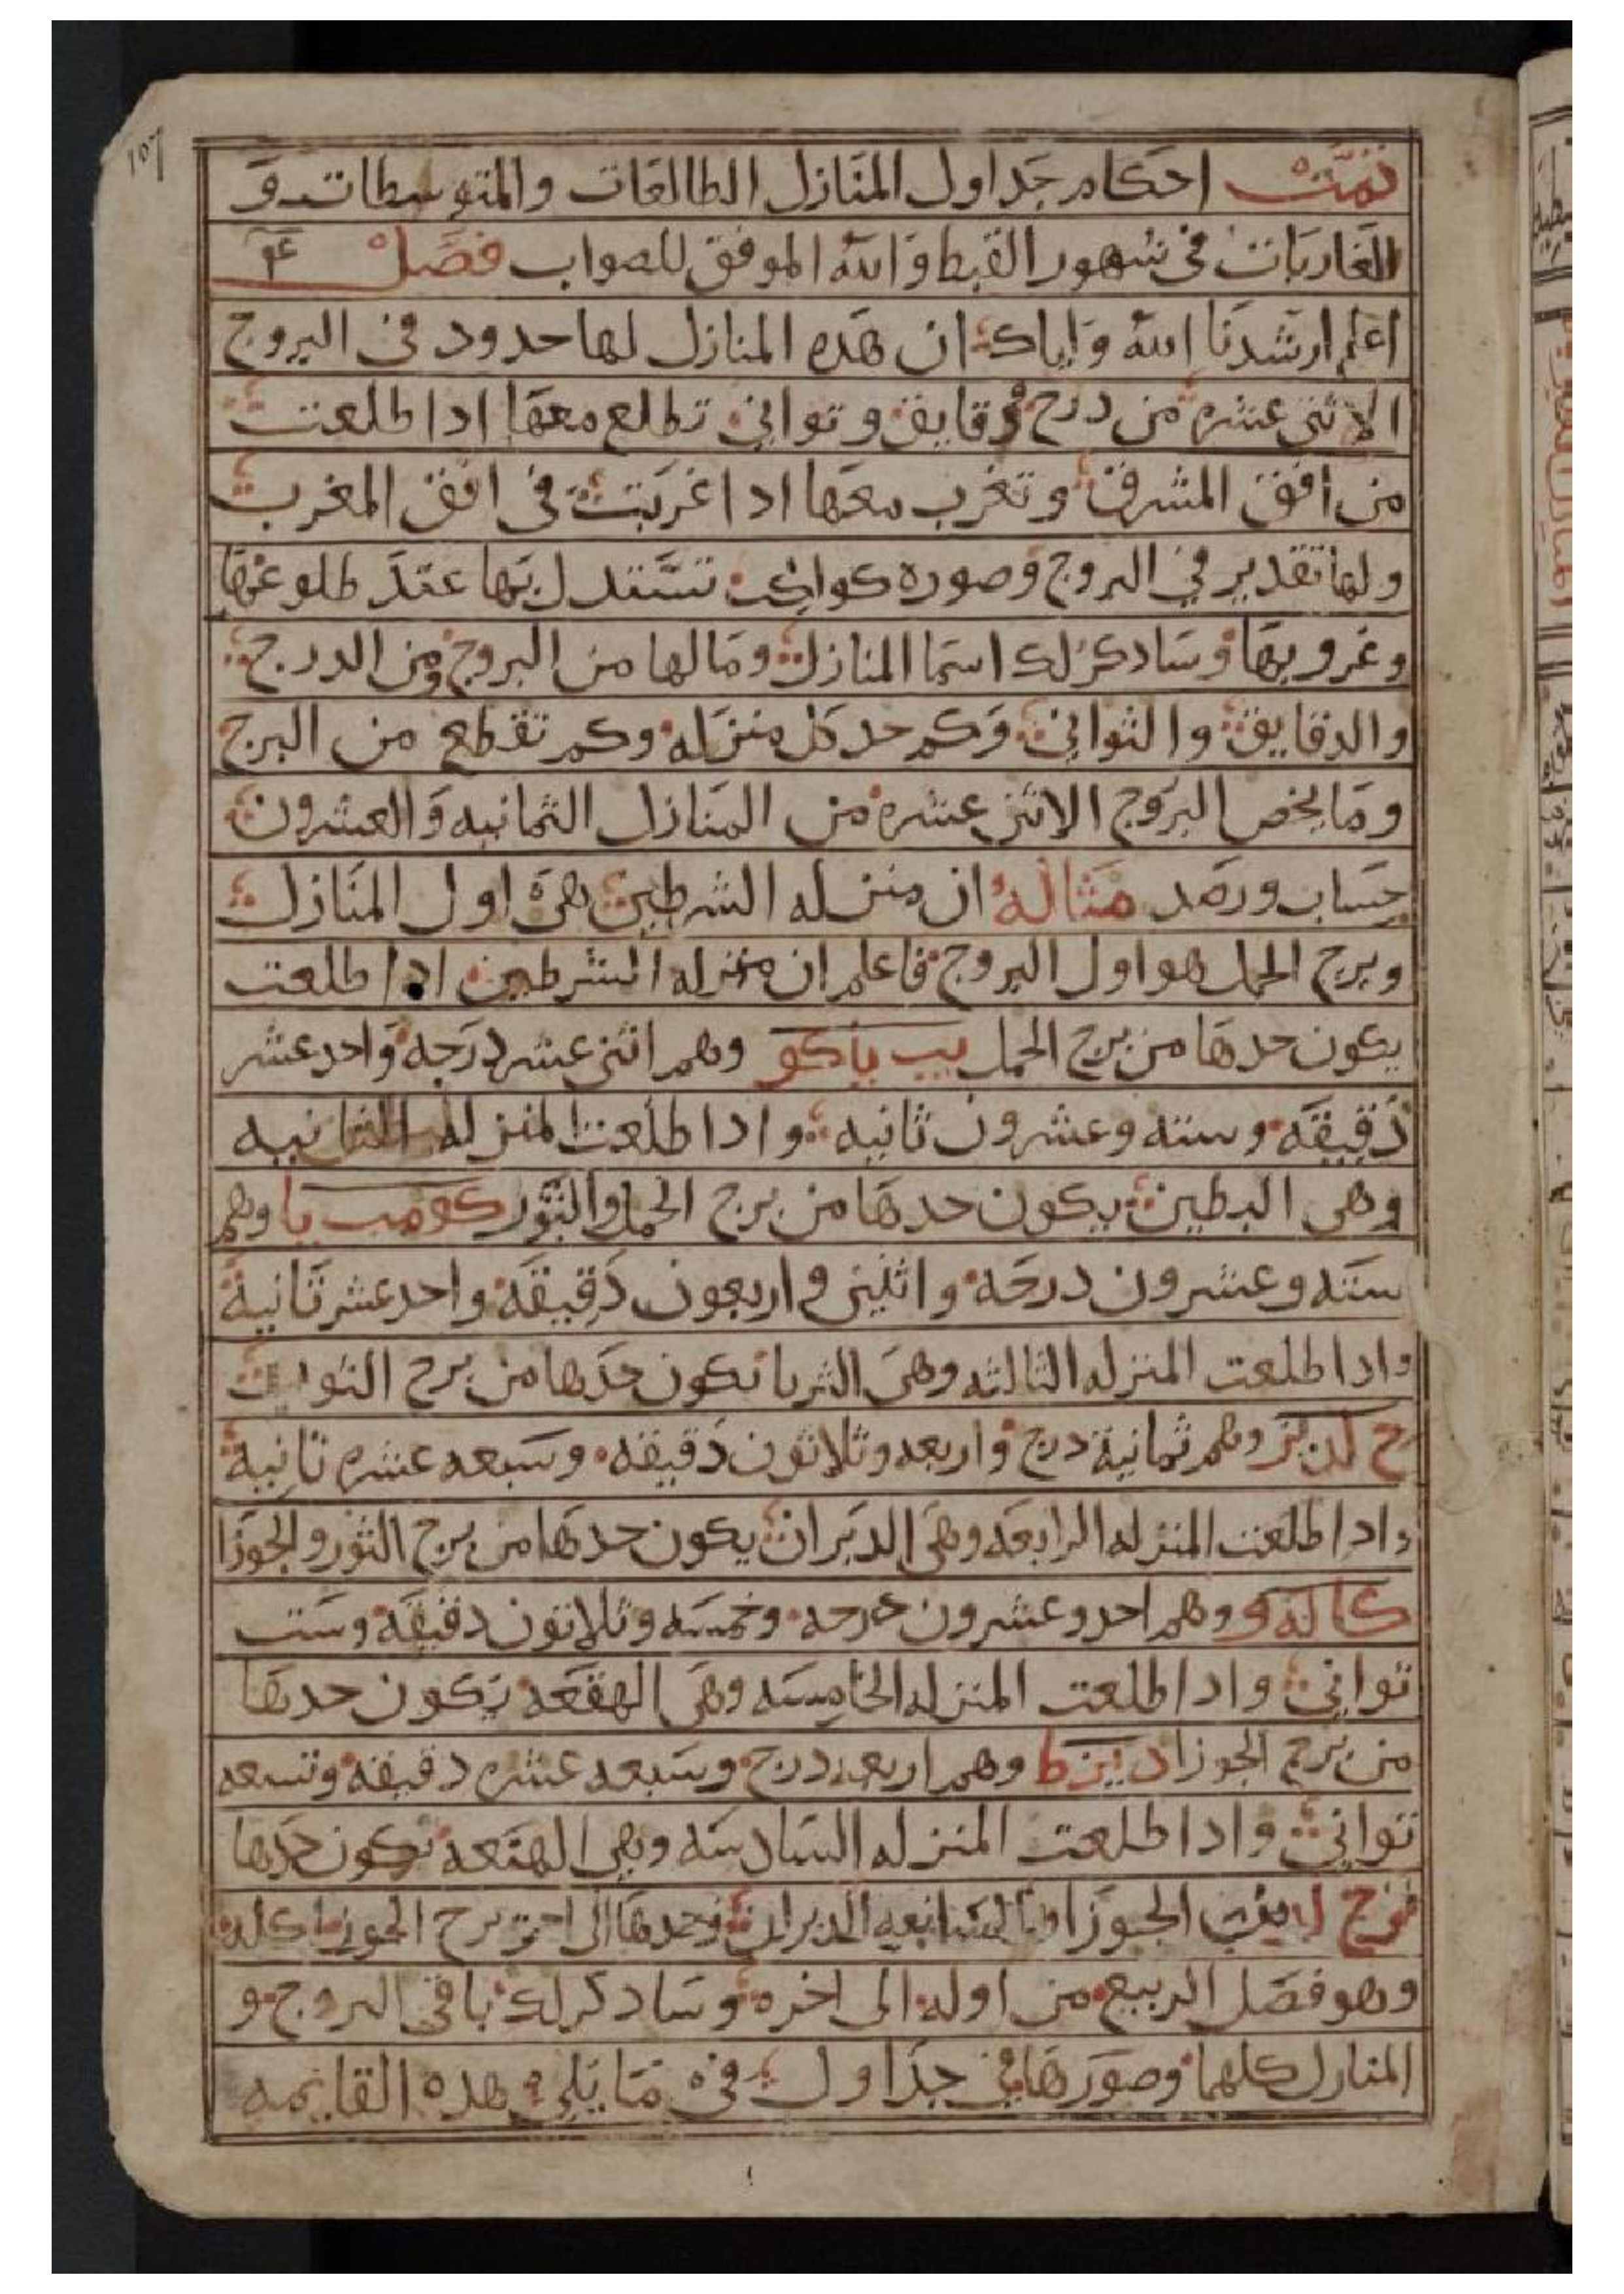 107
تمت احكام جداول المنازل الطالعات والمتوسطات و
الغاربات في شهور القبط والله الموفق للصواب فصل
اعلم ارشدنا الله واياك ان هده المنازل لها حدود في البروج
الاثنى عشره من درج ودقايق وتواني تطلع معها ادا طلعت
من افق المشرق وتغرب معها ادا غربت في افق المغرب
ولها تقدير في البروج وصوره كواكب تستدل بها عند طلوعها
وغروبها وسادكر لك اسما المنازل وما لها من البروج ومن الدرج
والدقايق والثواني وكم حد كل منزله وكم تقطع من البرج
وما يخص البروج الاثنى عشره من المنازل الثمانيه والعشرون
حساب ورصد مثاله ان منزله الشرطين هى اول المنازل
وبرج الحمل هو اول البروج فاعلم ان منزله الشرطين ادا طلعت
يكون حدها من برج الحمل يب يا كو وهم اثنى عشر درجه واحد عشر
دقيقه وسته وعشرون ثانيه وادا طلعت المنزله الثانيه
وهى البطين يكون حدها من برج الحمل والثور كو مب يا وهم
سته وعشرون درجه واثنين واربعون دقيقه واحد عشر ثانية
وادا طلعت المنزله الثالثه وهى الثريا تكون حدها من برج الثور
ح لد يز وهم ثمانية درج واربعه وثلاثون دقيقه وسبعه عشره ثانية
وادا طلعت المنزله الرابعه وهى الدبران يكون حدها من برج الثور والجوزا
كا له و وهم احد وعشرون درجه وخمسه وثلاثون دقيقه وست
توانى وادا طلعت المنزله الخامسه وهى الهقعه يكون حدها
من برج الجوزا د يز ط وهم اربعه درج وسبعه عشره دقيقه وتسعه
توانى وادا طلعت المنزله السادسه وهى الهنعه تكون حدها
الجوزا الدبران وحدها الى اخر برج الجوزا كله
وهو فصل الربيع من اوله الى اخره وسادكر لك باقى البروج و
المنازل كلهما وصورها فى جداول فى ما يلى هده القايمه